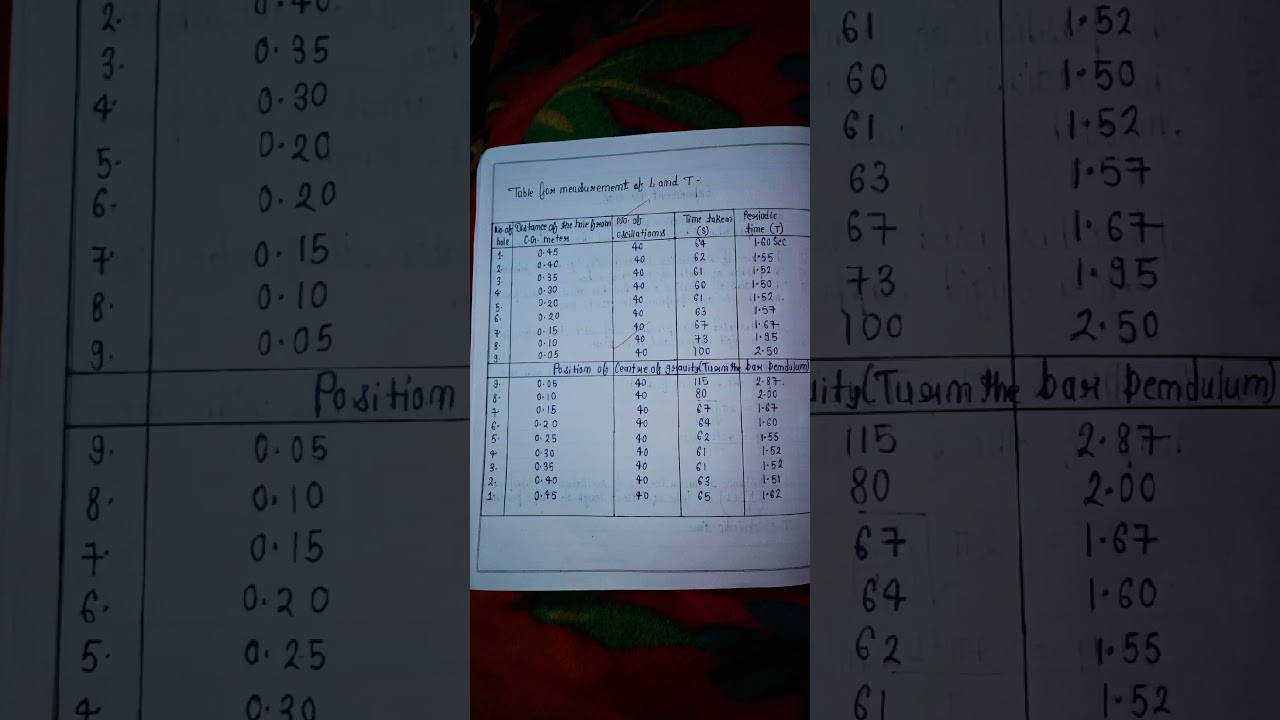 Table for meadurement of L and T-
No. of hole Distance of the hole from C.G. meter No. of oscillations Time taken (S) Periodic time (T)
1. 0.45 40 64 1.60 Sec
2. 0.40 40 62 1.55
3. 0.35 40 61 1.52
4. 0.30 40 60 1.50
5. 0.20 40 61 1.52
6. 0.20 40 63 1.57
7. 0.15 40 67 1.67
8. 0.10 40 73 1.95
9. 0.05 40 100 2.50
Position of Centre of gravity (Turn the bar Pendulum)
9. 0.05 40 115 2.87
8. 0.10 40 80 2.00
7. 0.15 40 67 1.67
6. 0.20 40 64 1.60
5. 0.25 40 62 1.55
4. 0.30 40 61 1.52
3. 0.35 40 61 1.52
2. 0.40 40 63 1.51
1. 0.45 40 65 1.62